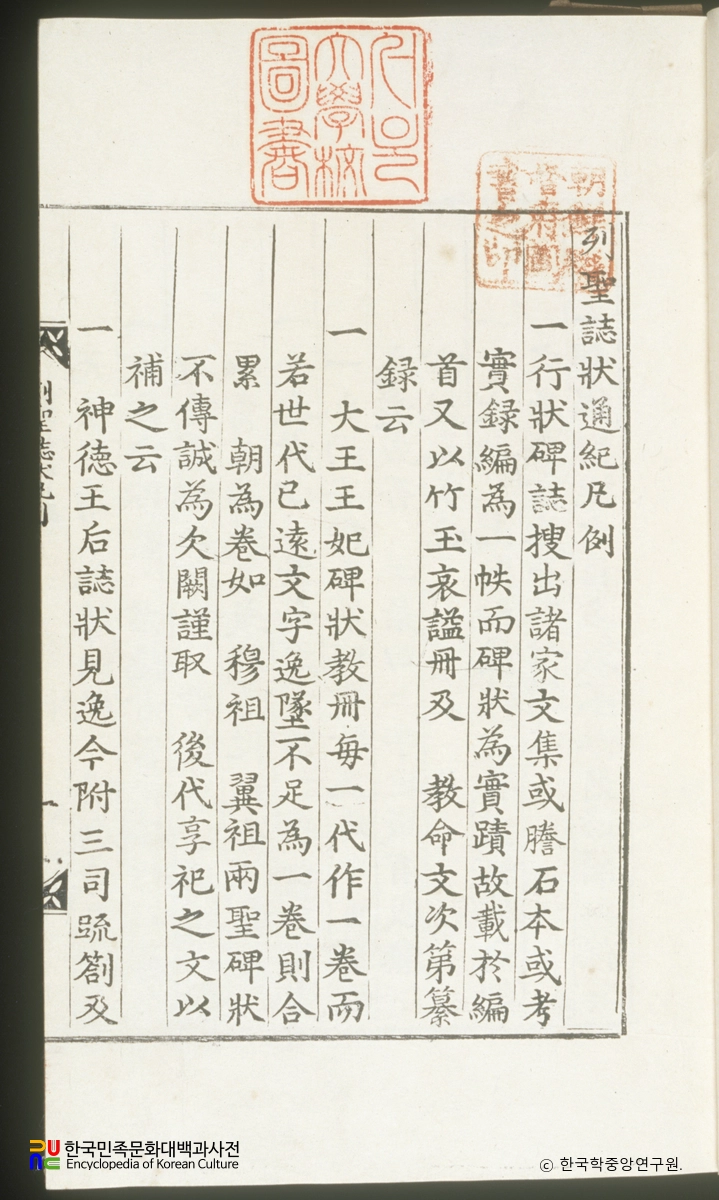 列聖誌狀通紀凡例
一行狀碑誌搜出諸家文集或謄石本或考
實録編為一帙而碑狀為實蹟故載於編
首又以竹玉哀謚冊及 教命文次第纂
録云
一 大王王妃碑狀教冊每一代作一卷而
若世代已遠文字逸墜不足為一卷則合
累 朝為卷如 穆祖 翼祖兩聖碑狀
不傳誠為欠闕謹取 後代享祀之文以
補之云
一 神德王后誌狀見逸今附三司䟽劄及
大學校
圖書
朝鮮總
督府圖
書之印
한국민족문화대백과사전
Encyclopedia of Korean Culture
© 한국학중앙연구원.